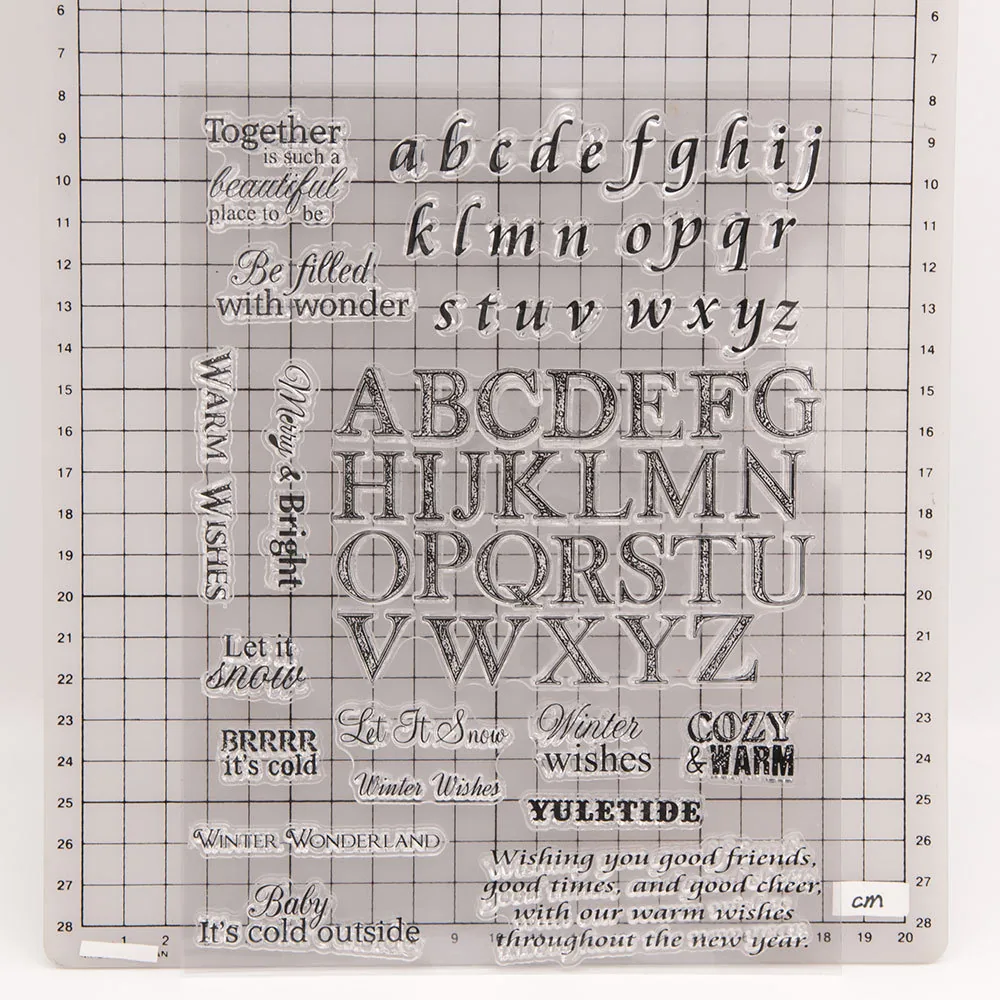 Together
is such a
beautiful
place to be
Be filled
with wonder
a b c d e f g h i j
k l m n o p q r
s t u v w x y z
WARM WISHES
Merry & Bright
A B C D E F G
H I J K L M N
O P Q R S T U
V W X Y Z
Let it
snow
BRRRR
it's cold
Let It Snow
Winter Wishes
Winter
wishes
COZY
& WARM
YULETIDE
WINTER WONDERLAND
Baby
It's cold outside
Wishing you good friends,
good times, and good cheer,
with our warm wishes
throughout the new year.
cm
6
7
8
9
10
11
12
13
14
15
16
17
18
19
20
21
22
23
24
25
26
27
28
6
8
9
10
11
12
13
14
15
16
17
18
19
20
21
22
23
24
25
26
27
28
1 2 9 18 19 20